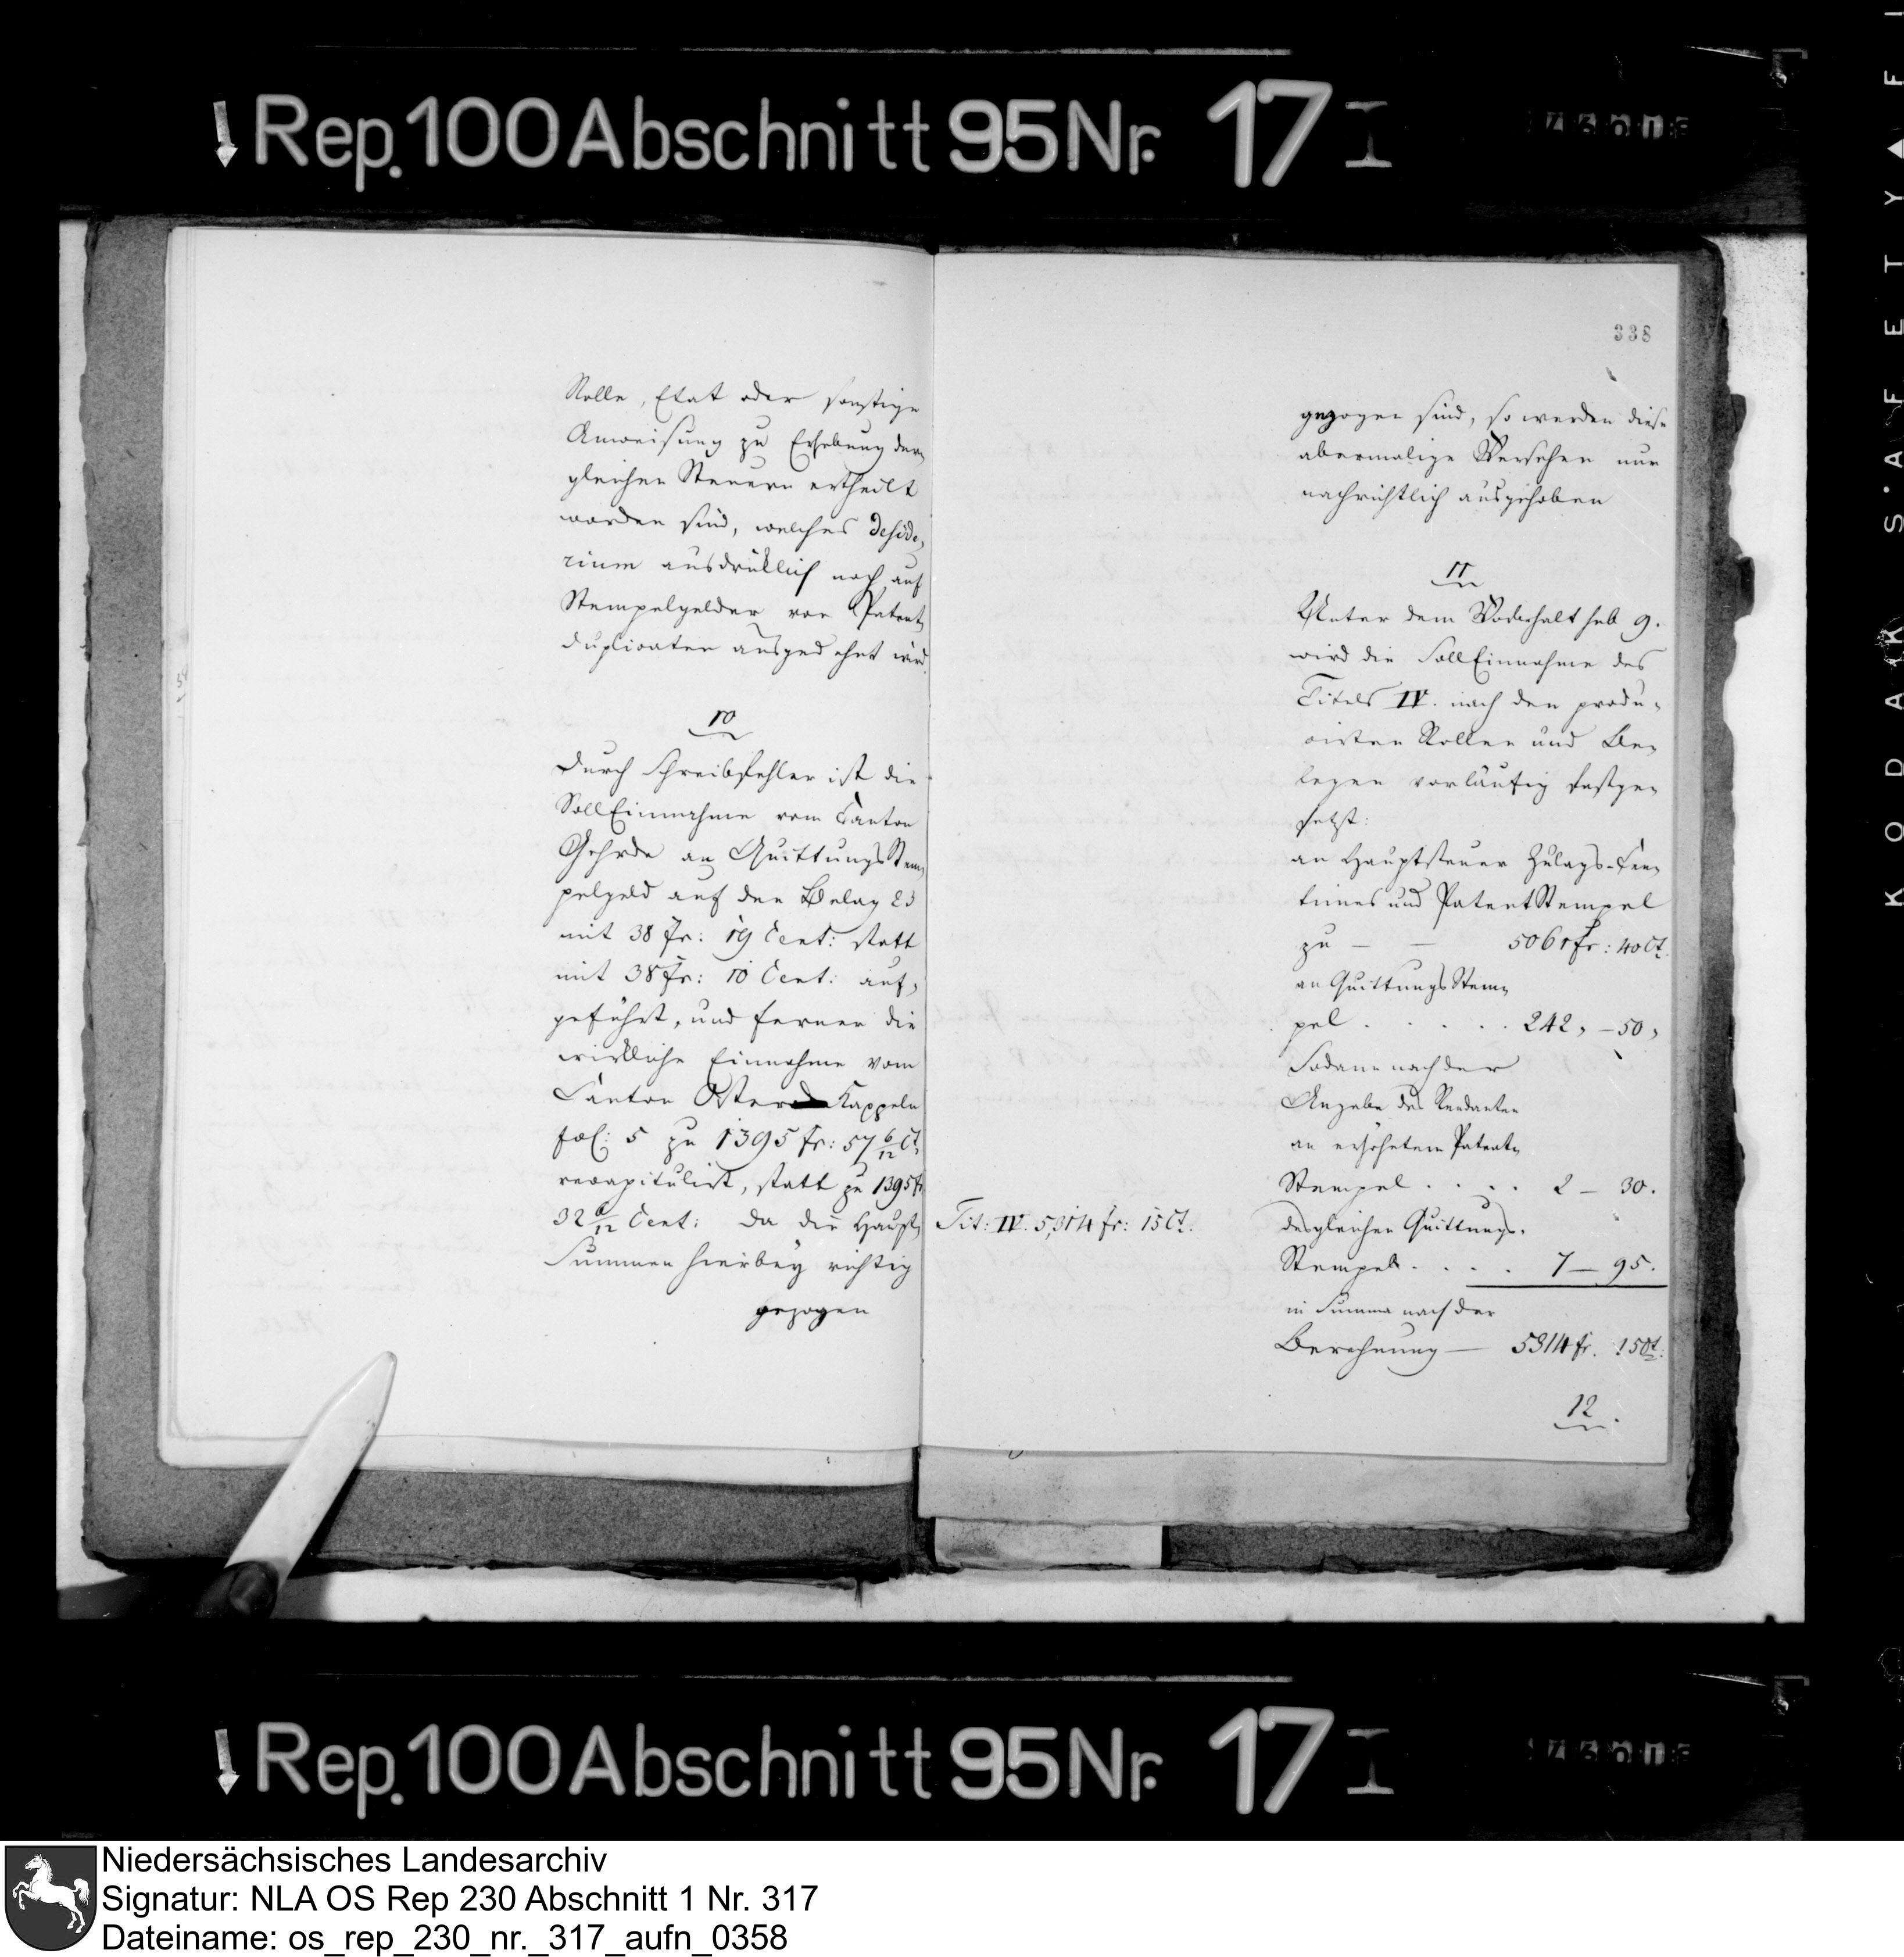 Rep. 100 Abschnitt 95 Nr. 17 I
Rolle, Etat oder sonstige
Anweisung zu Erhebung der,
gleichen Steuern ertheilt
worden sind, welches Deside,
rium ausdrüklich noch auf
Stempelgelder von Patent,
duplicaten ausgedehnt wird.
10
Durch Schreibfehler ist die
Soll Einnahme vom Canton
Gehrde an Quittungs Stem,
pelgeld auf den Belag 23
mit 38 Fr: 19 Cent: statt
mit 38 Fr: 10 Cent: auf,
geführt, und ferner die
wirkliche Einnahme vom
Canton Oster Kappeln
fol: 5 zu 1395 fr: 57 6/12 Ct,
recapitulirt, statt zu 1395 fr
32 6/12 Cent: Da die Haupt,
Summen hierbey richtig
gezogen
338
gezogen sind, so werden diese
abermalige Versehen nur
nachrichtlich ausgehoben
11
Unter dem Vorbehalt sub 9.
wird die Soll Einnahme des
Titels IV. nach den produ,
cirten Rollen und Be,
legen vorläufig festge,
setzt:
an Hauptsteuer Zulags-Cen,
timen und Patent Stempel
zu — — 5061 fr: 40 Ct.
an Quittungs Stem,
pel . . . . . 242, – 50,
Sodann nach der
Angabe des Rendanten
an erhöhetem Patent,
Stempel . . . . 2 – 30.
Tit: IV. 5,314 fr: 15 Ct.
desgleichen Quittungs,
Stempel . . . . 7 – 95.
in Summa nach der
Berechnung — 5314 fr. 15 Ct.
12.
Rep. 100 Abschnitt 95 Nr. 17 I
KODAK S.A.F.E.T.Y.
Niedersächsisches Landesarchiv
Signatur: NLA OS Rep 230 Abschnitt 1 Nr. 317
Dateiname: os_rep_230_nr._317_aufn_0358